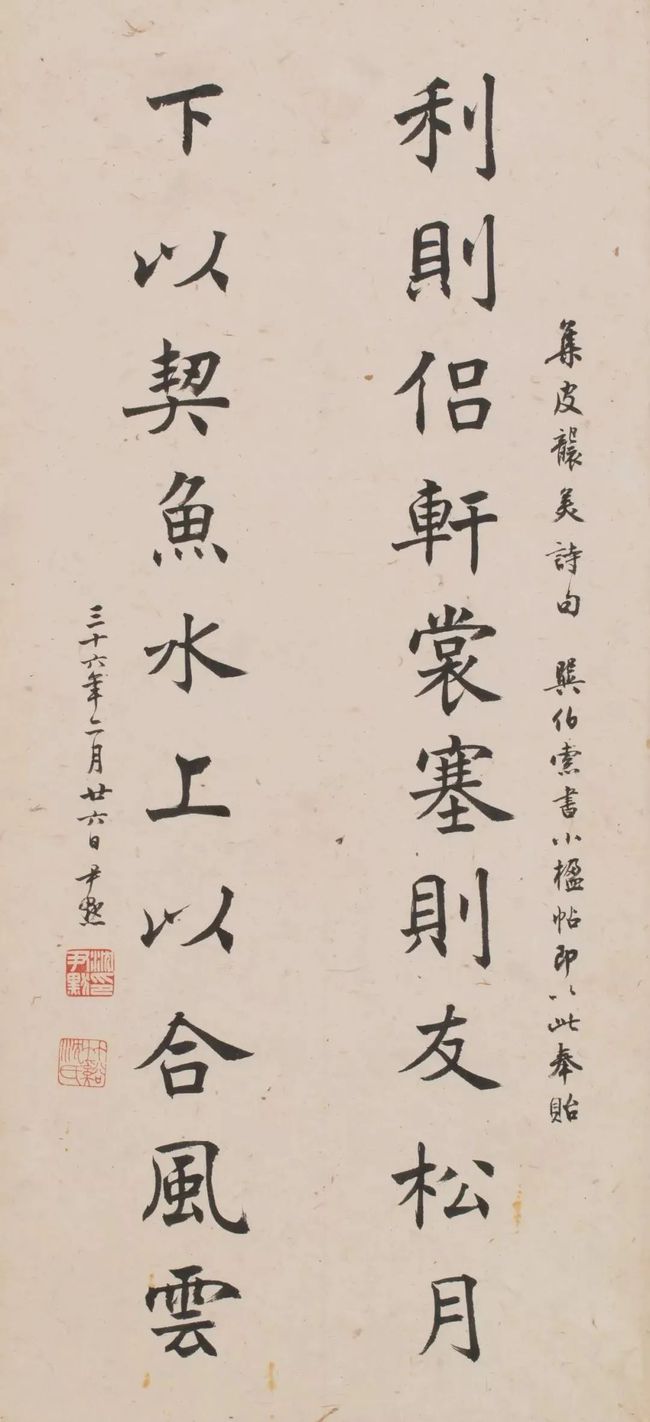 集皮襲美詩句 巽伯索書小楹帖即以此奉貽
利則侶軒裳塞則友松月
下以契魚水上以合風雲
三十六年二月廿六日 尹默
沈尹默印
竹谿沈氏